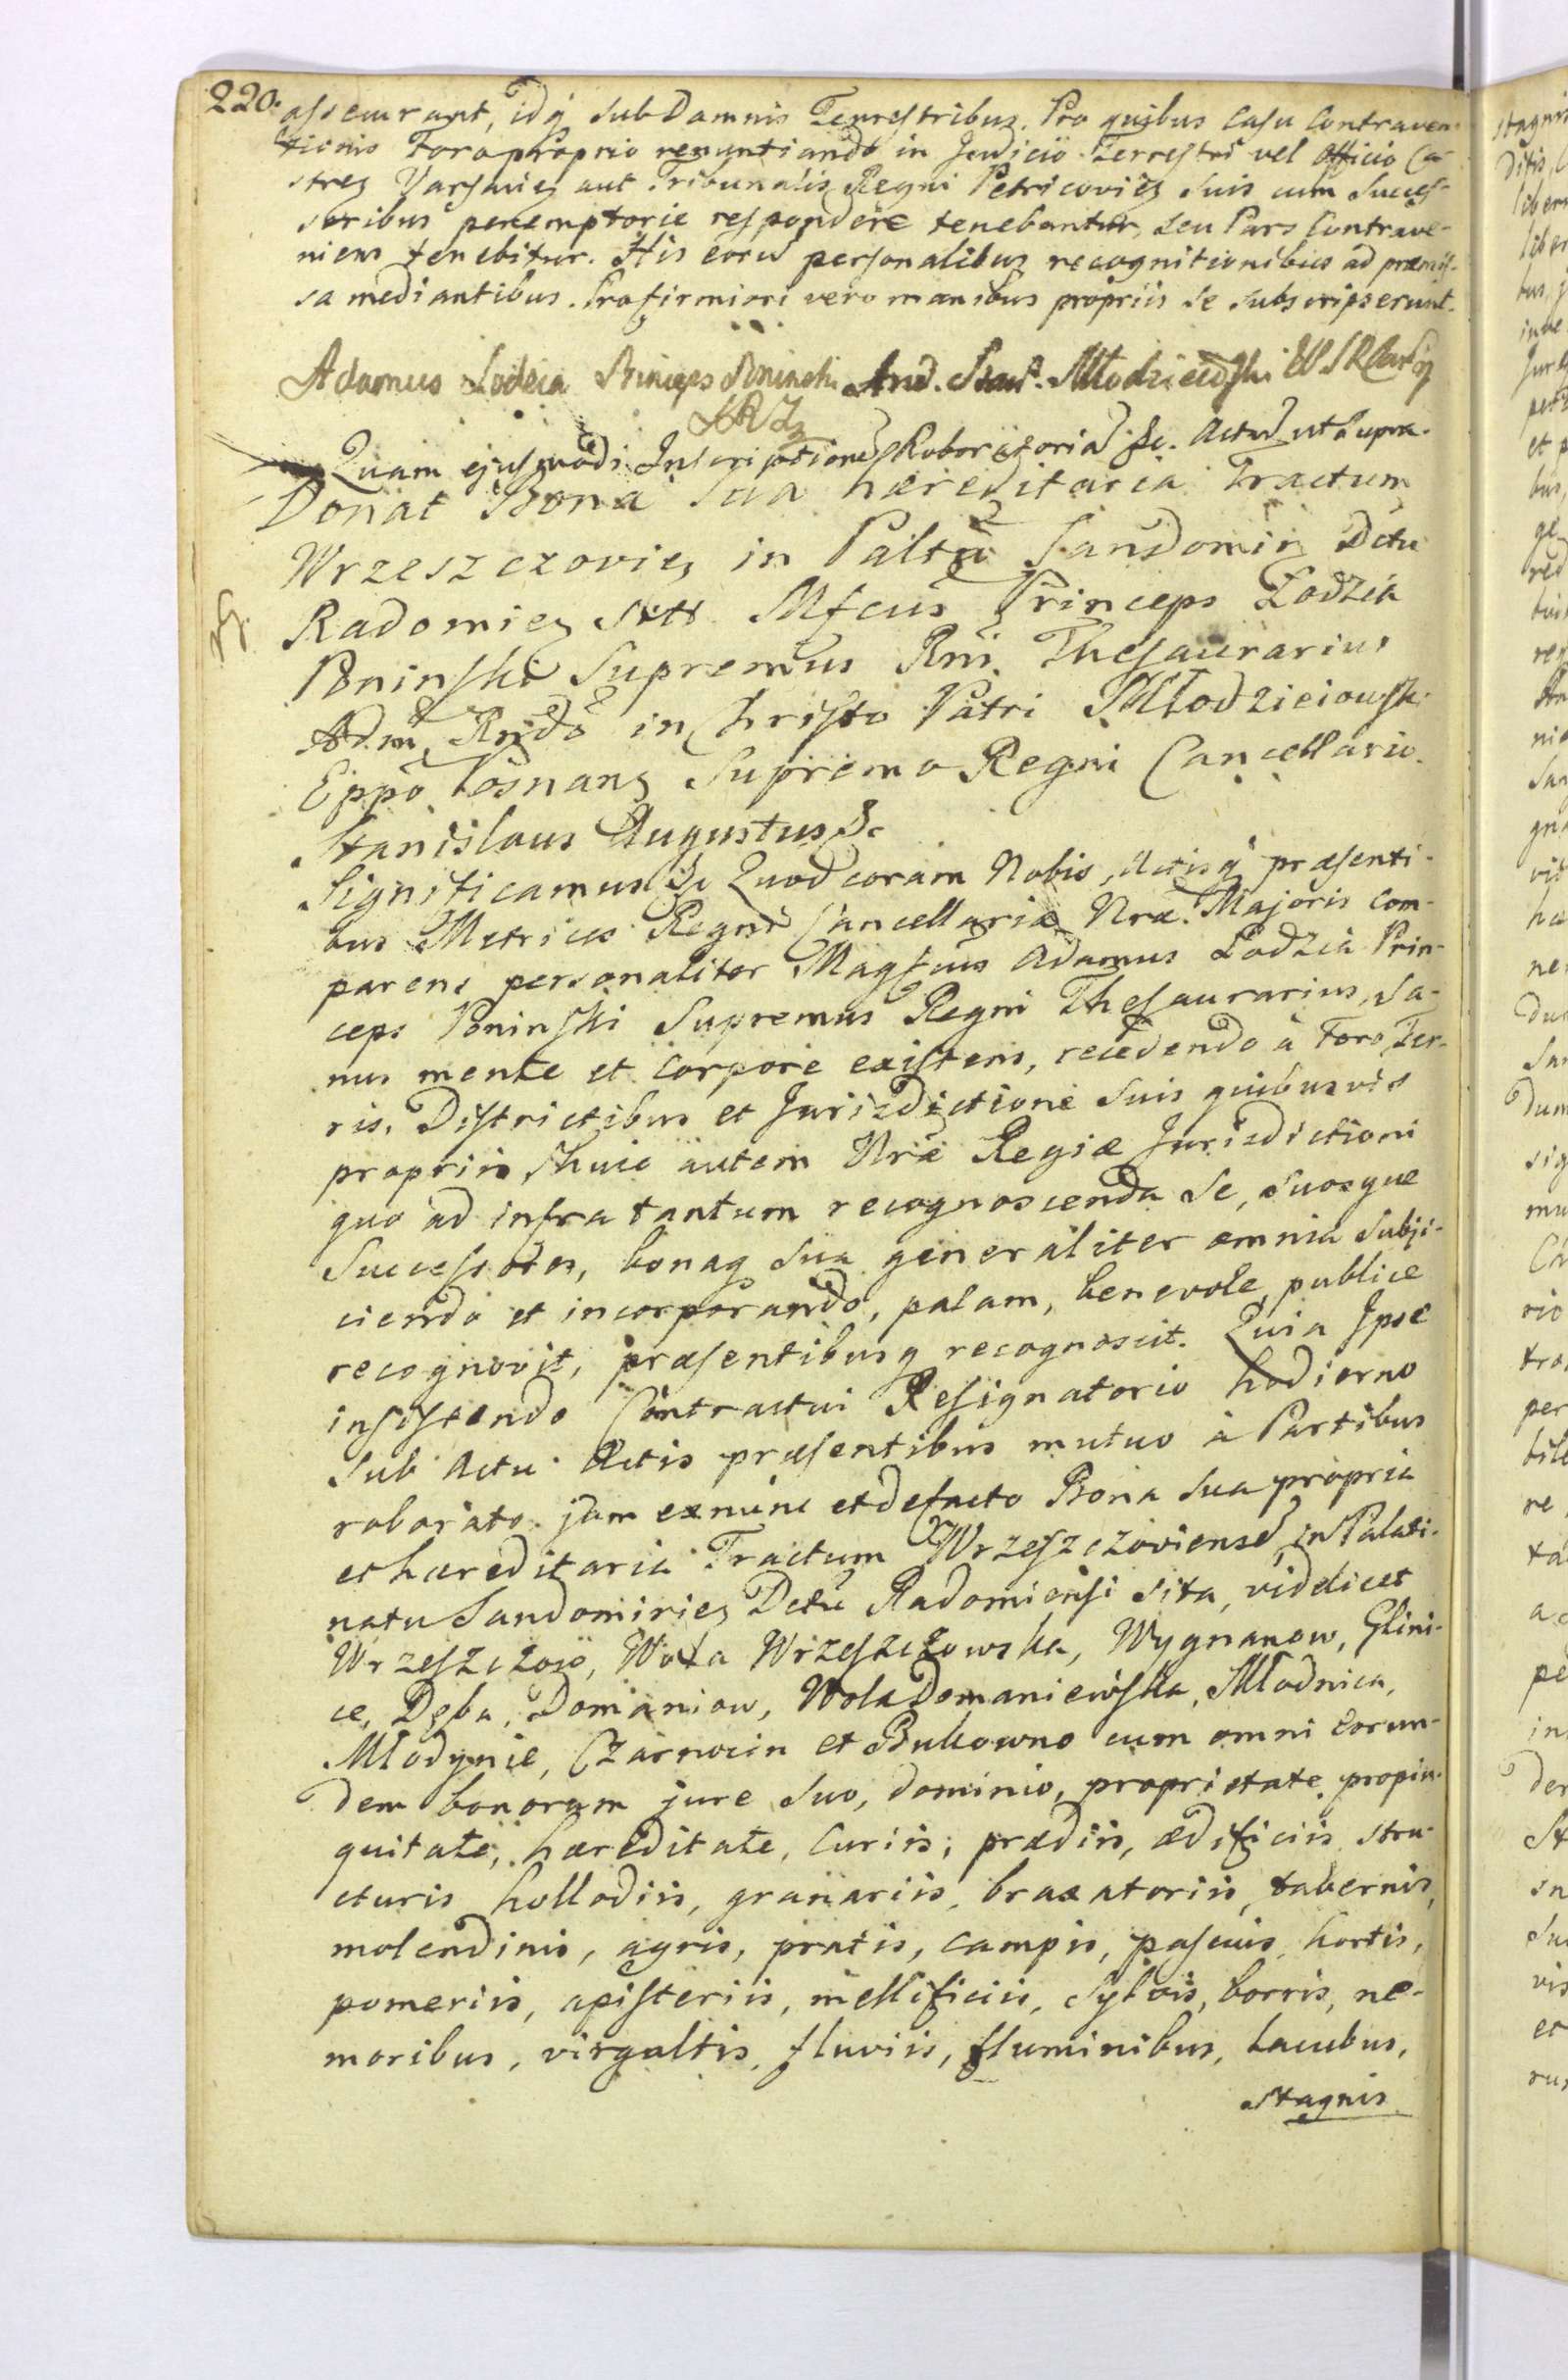 220.
assecurant, idq sub Damnis Terrestribus. Pro quibus Casu Contraven-
tionis Foro proprio renuntiando in Judicio Terrestri vel Officio Ca-
streg Varsavieg aut Tribunalis Regni Petricovieg suis cum Succes-
soribus peremptorie respondere tenebantur, seu Pars Contrave-
niens tenebitur. His eorū personalibus recognitionibus ad præmis-
sa mediantibus. Pro firmiori vero manibus propriis se subscripserunt.
Adamus Lodzia Princeps Poninski And. Stan. Młodzieiowski
Quam ejusmodi Inscriptione Roboratoria &c. Actū ut supra.
Donat Bona sua hæreditaria Tractum
Wrzeszczovieg in Palttū Sandomir Dctu
Radomieg Mfcus Princeps Łodzia
Poninski Supremus Rni Thesaurarius
Adm Rndo in Christo Patri Młodzieiowski
Eppo Posnang Supremo Regni Cancellario.
Stanislaus Augustus &c
Significamus &c Quod coram Nobis, Actisq præsenti-
bus Metrices Regni Cancellariæ Nræ Majoris Com-
parens personaliter Magfcus Adamus Łodzia Prin-
ceps Poninski Supremus Regni Thesaurarius, sa-
nus mente et corpore existens, recedendo à Foro Ter-
ris, Districtibus et Jurisdictione suis quibusvis
propriis, huic autem Nræ Regiæ Jurisdictioni
quo ad infra tantum recognoscenda se, suosque
Successores, bonaq sua generaliter omnia subji-
ciendo et incorporando, palam, benevole, publice
recognovit, præsentibusq recognoscit. Quia Ipse
insistendo Contractui Resignatorio hodierno
sub Actu Actis præsentibus mutuo à Partibus
roborato jam exnunc et defacto Bona sua propria
et hæreditaria Tractum Wrzeszczoviensē in Palati-
natu Sandomirieg Dctū Radomiensi sita, videlicet
Wrzeszczow, Wola Wrzeszczowska, Wygnanow, Glini-
ce, Dęba, Domaniow, Wola Domaniewska, Młodnica,
Młodynie, Czarnocin et Bukowno cum omni eorun-
dem bonorum jure suo, dominio, proprietate, propin-
quitate, hæreditate, Curiis, prædiis, ædificiis, stru-
cturis, hollodiis, granariis, braxatoriis, tabernis,
molendinis, agris, pratis, campis, pascuis, hortis,
pomeriis, apisteriis, mellificiis, sylvis, borris, ne-
moribus, virgultis, fluviis, fluminibus, lacubus,
stagnis